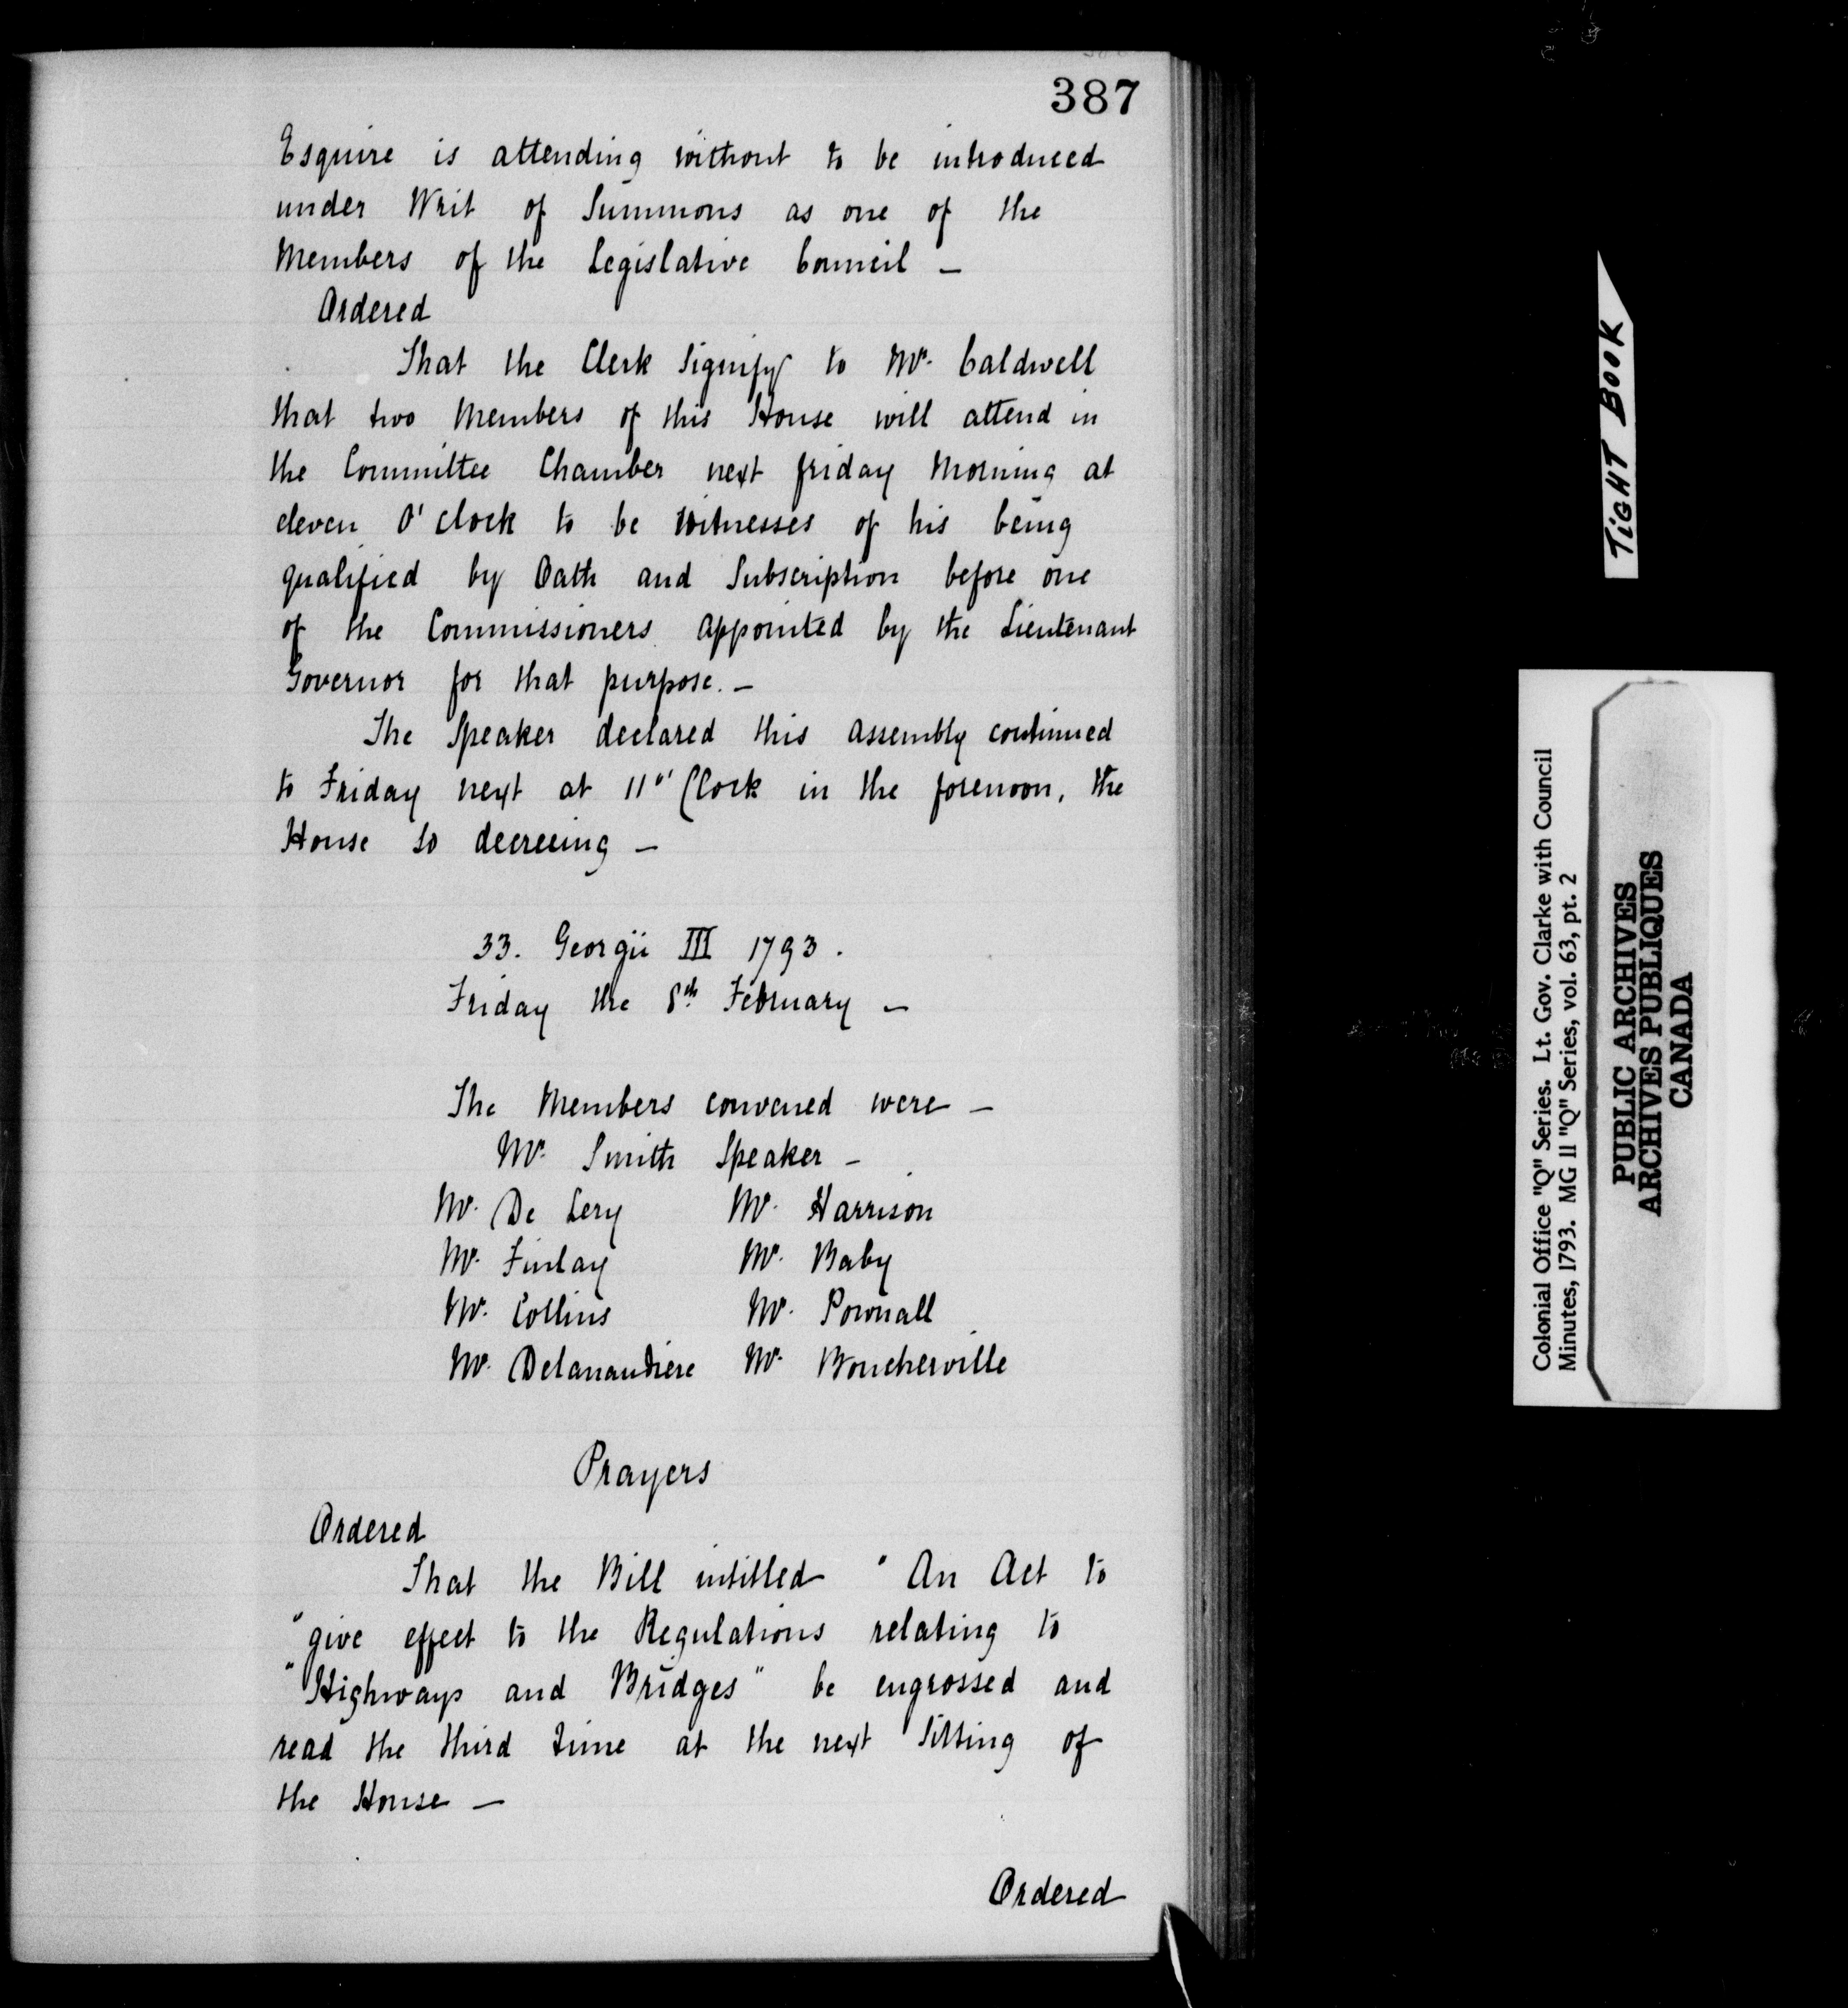 387
Esquire is attending without to be introduced
under Writ of Summons as one of the
Members of the Legislative Council —
Ordered
That the Clerk Signify to Mr. Caldwell
that two Members of this House will attend in
the Committee Chamber next friday Morning at
eleven O'clock to be Witnesses of his being
qualified by Oath and Subscription before one
of the Commissioners appointed by the Lieutenant
Governor for that purpose. —
The Speaker declared this Assembly continued
to Friday next at 11 o' Clock in the forenoon, the
House so decreeing —
33. Georgii III 1793.
Friday the 8th February —
The Members convened were —
Mr. Smith Speaker —
Mr. De Lery Mr. Harrison
Mr. Finlay Mr. Baby
Mr. Collins Mr. Pownall
Mr. Delanaudiere Mr. Boucherville
Prayers
Ordered
That the Bill intitled "An Act to
"give effect to the Regulations relating to
"Highways and Bridges" be engrossed and
read the third time at the next Sitting of
the House —
Ordered
TIGHT BOOK
Colonial Office "Q" Series. Lt. Gov. Clarke with Council
Minutes, 1793. MG 11 "Q" Series, vol. 63, pt. 2
PUBLIC ARCHIVES
ARCHIVES PUBLIQUES
CANADA